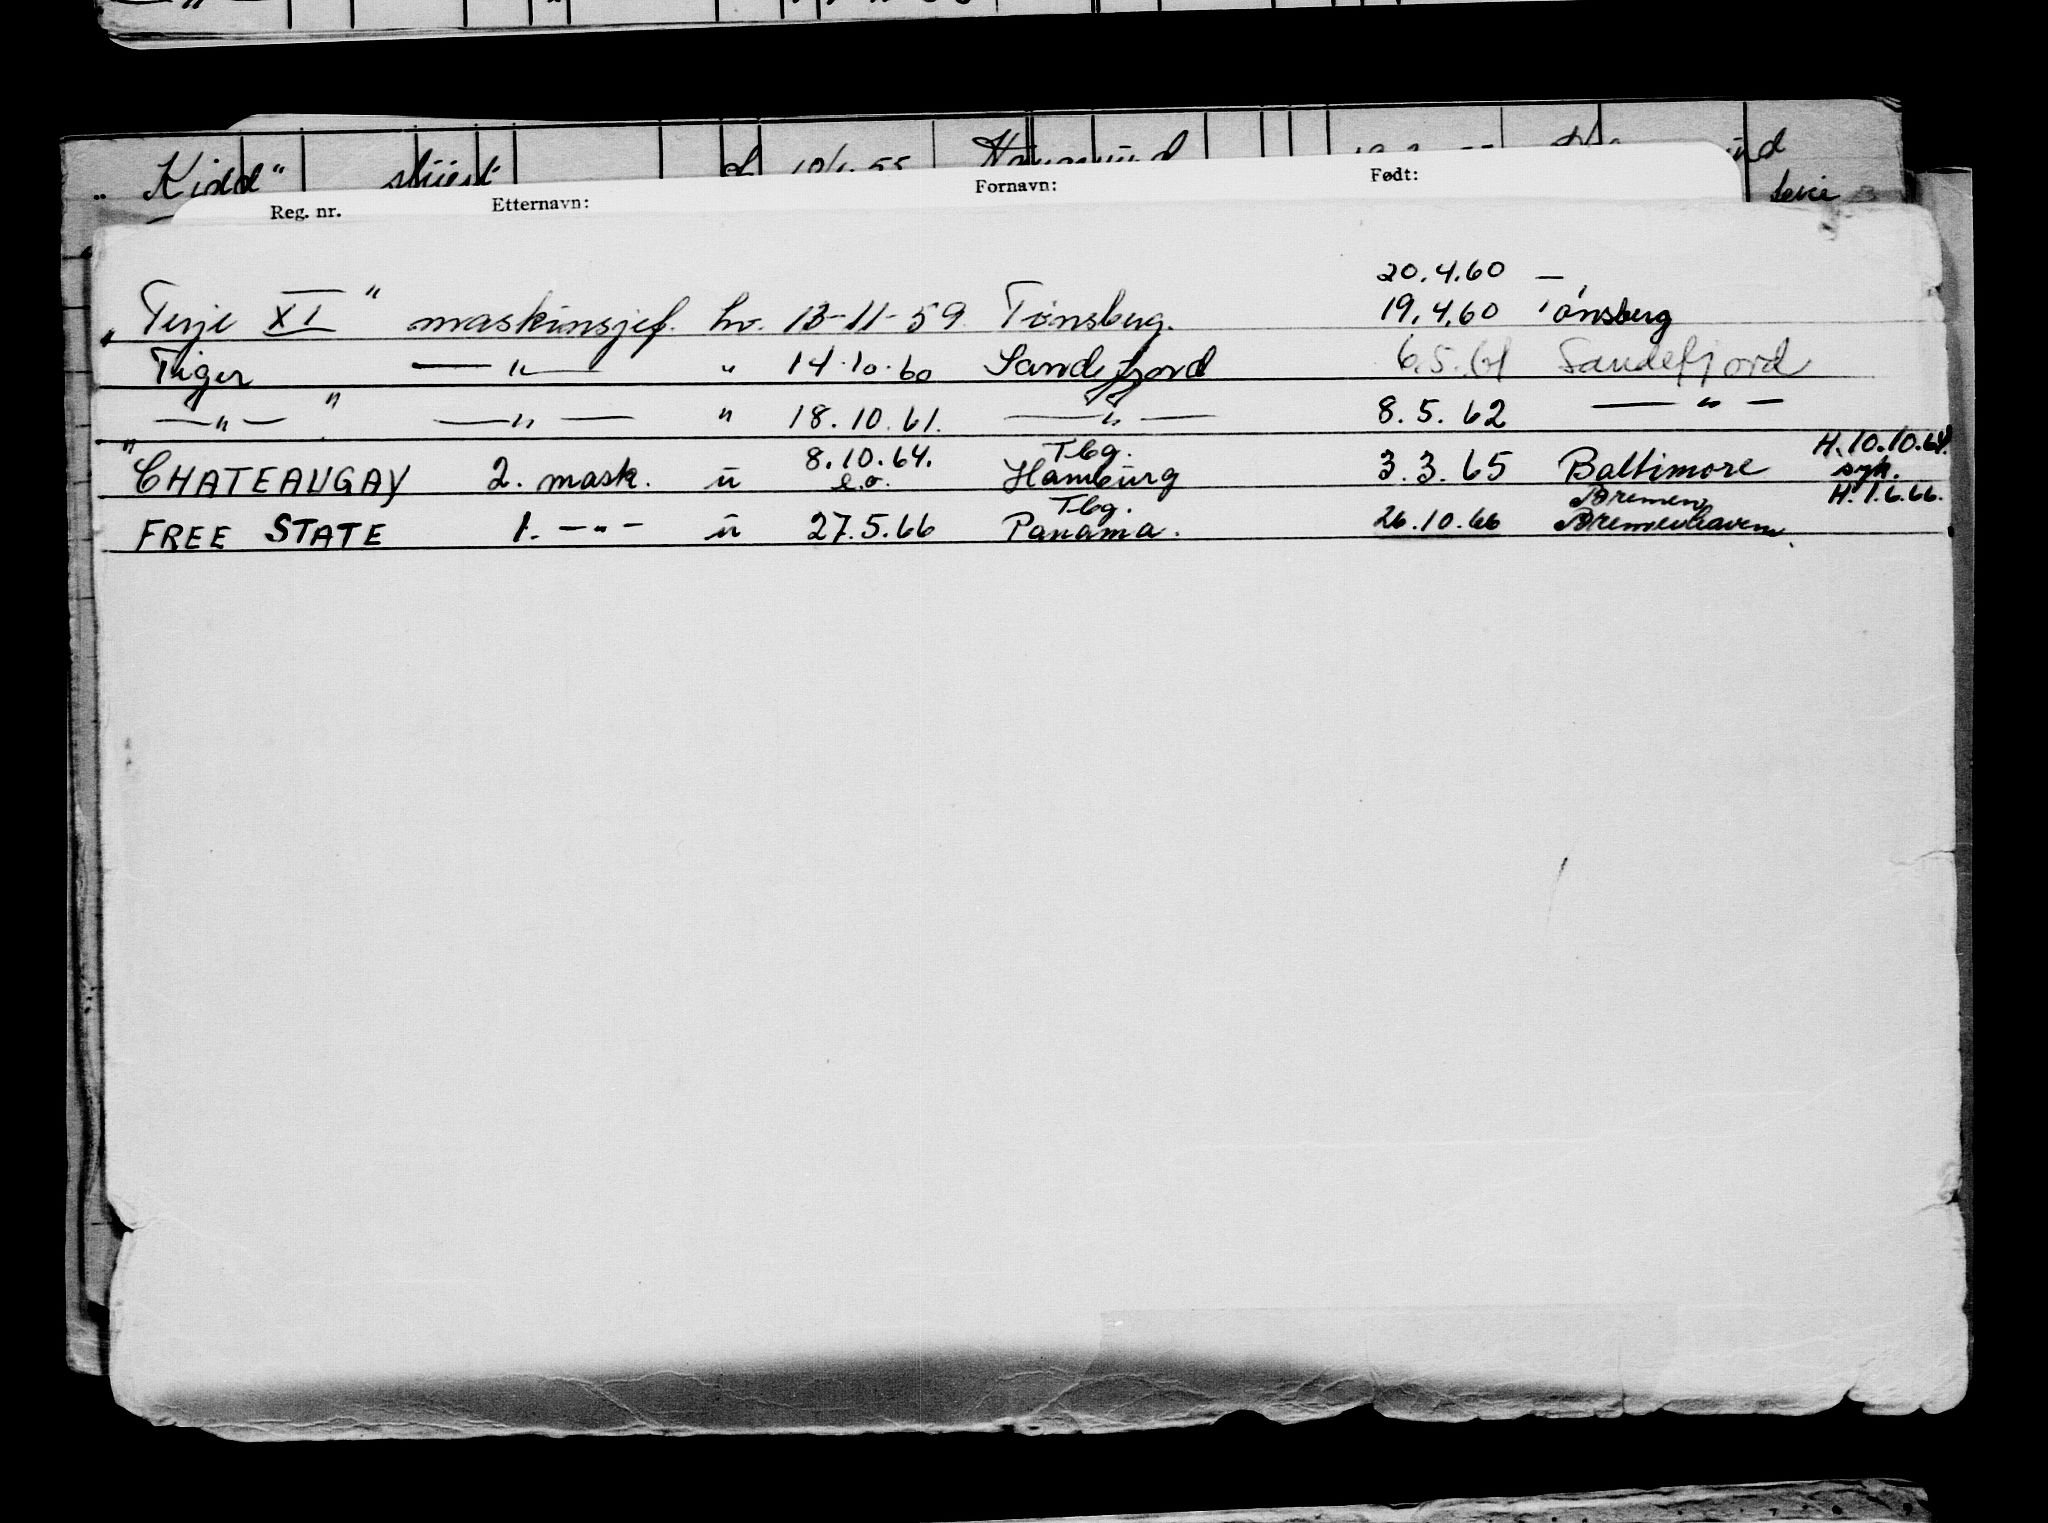 "Kidd"
Reg. nr. Etternavn: Fornavn: Født:
20.4.60 —
"Terje XI" maskinsjef. hv. 13-11-59 Tønsberg. 19.4.60 Tønsberg
Tiger —"— " 14.10.60 Sandefjord 6.5.61 Sandefjord
—"— " —"— " 18.10.61. —"— 8.5.62 —"—
8.10.64. Tbg. H.10.10.64.
"CHATEAUGAY 2. mask. u e.o. Hamburg 3.3.65 Baltimore syk.
Tbg. Bremen H.1.6.66.
FREE STATE 1. —"— u 27.5.66 Panama. 26.10.66 Bremerhaven